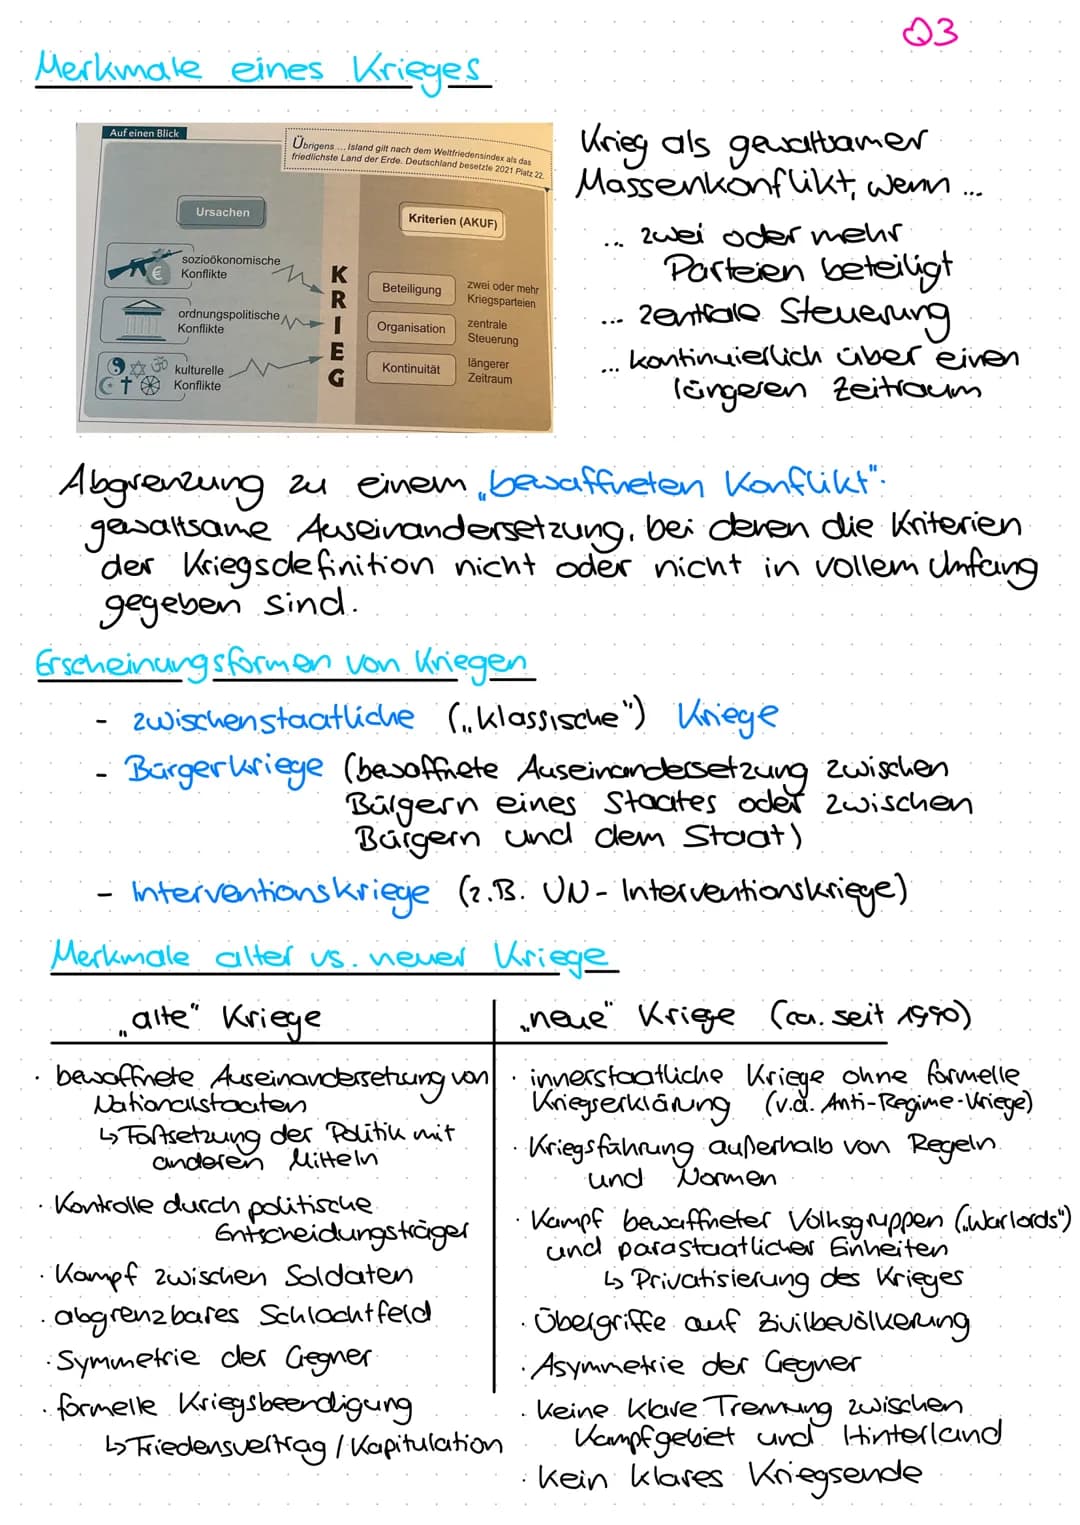 Q3
Merkmale eines Krieges
Auf einen Blick
Übrigens ... Island gilt nach dem Weltfriedensindex als das
friedlichste Land der Erde. Deutschland besetzte 2021 Platz 22.
Ursachen
Kriterien (AKUF)
sozioökonomische
Konflikte
ordnungspolitische
Konflikte
kulturelle
Konflikte
KRIEG
Beteiligung
zwei oder mehr
Kriegsparteien
Organisation
zentrale
Steuerung
Kontinuität
längerer
Zeitraum
Krieg als gewaltsamer
Massenkonflikt, wenn ...
... zwei oder mehr
Parteien beteiligt
... zentrale Steuerung
... kontinuierlich über einen
längeren Zeitraum
Abgrenzung zu einem „bewaffneten Konflikt":
gewaltsame Auseinandersetzung, bei denen die Kriterien
der Kriegsdefinition nicht oder nicht in vollem Umfang
gegeben sind.
Erscheinungsformen von Kriegen
- zwischenstaatliche („klassische") Kriege
- Bürgerkriege (bewaffnete Auseinandersetzung zwischen
Bürgern eines Staates oder zwischen
Bürgern und dem Staat)
- Interventionskriege (z.B. UN-Interventionskriege)
Merkmale alter vs. neuer Kriege
„alte" Kriege
· bewaffnete Auseinandersetzung von
Nationalstaaten
↳ Fortsetzung der Politik mit
anderen Mitteln
· Kontrolle durch politische
Entscheidungsträger
· Kampf zwischen Soldaten
· abgrenzbares Schlachtfeld
· Symmetrie der Gegner
· formelle Kriegsbeendigung
↳ Friedensvertrag / Kapitulation
„neue" Kriege (ca. seit 1990)
· innerstaatliche Kriege ohne formelle
Kriegserklärung (v.a. Anti-Regime-Kriege)
· Kriegsführung außerhalb von Regeln
und Normen
· Kampf bewaffneter Volksgruppen („Warlords")
und parastaatlicher Einheiten
↳ Privatisierung des Krieges
· Übergriffe auf Zivilbevölkerung
· Asymmetrie der Gegner
· keine klare Trennung zwischen
Kampfgebiet und Hinterland
· kein klares Kriegsende